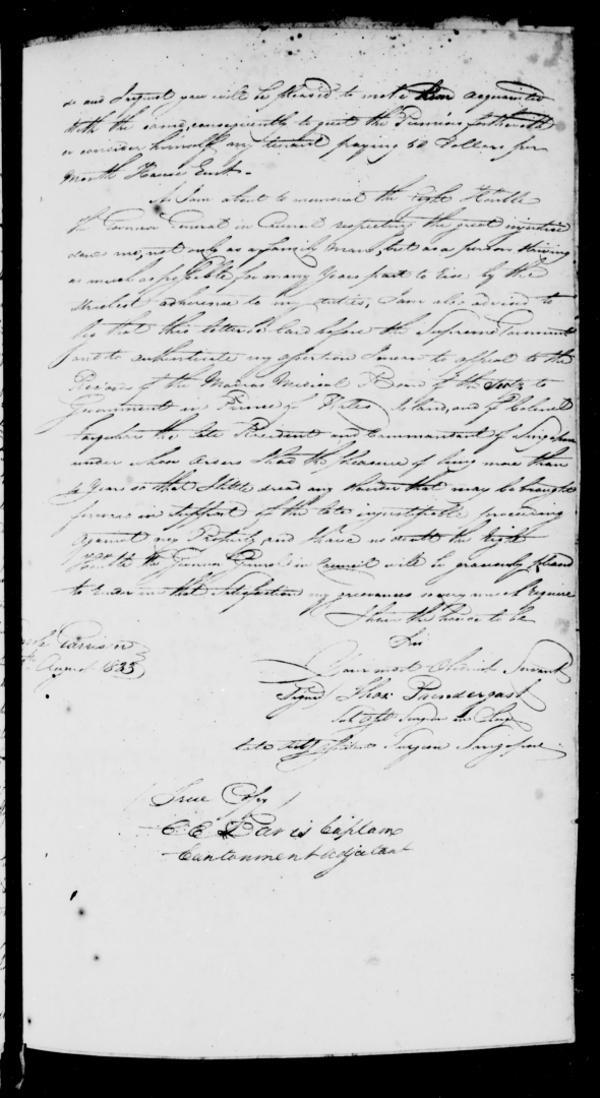 so and I request you will be pleased to make him acquainted
with the same, consequently to quit the Premises forthwith
or consider himself my tenant paying 50 Dollars per
Month House Rent.
As I am about to memorial the Right Honble
the Governor General in Council respecting the great injustice
done me, not only as a family Man, but as a person striving
as much as possible for many Years past to rise by the
strictest adherence to my duties, I am also advised to
beg that this letter be laid before the Supreme Government
and to authenticate my assertion I mean to appeal to the
Records of the Madras Medical Board of the to
Government in Prince of Wales Island, and of Colonel
Farquhar the late Resident and Commandant of Singapore
under whose orders I had the pleasure of being more than
4 Years so that I little dread any that may be brought
forward in support of the late unjustifiable proceeding
against my Property, and I have no doubt the Right
Honble the Governor General in Council will be graciously pleased
to render me that satisfaction my grievances so very much require
I have the honor to be
Sir
Your most Obedient Servant
Signed Thos Prendergast
Asst Surgeon
late Surgeon Singapore
Garrison
August 1823
(True Copy)
C E Davis Captain
Cantonment Adjutant